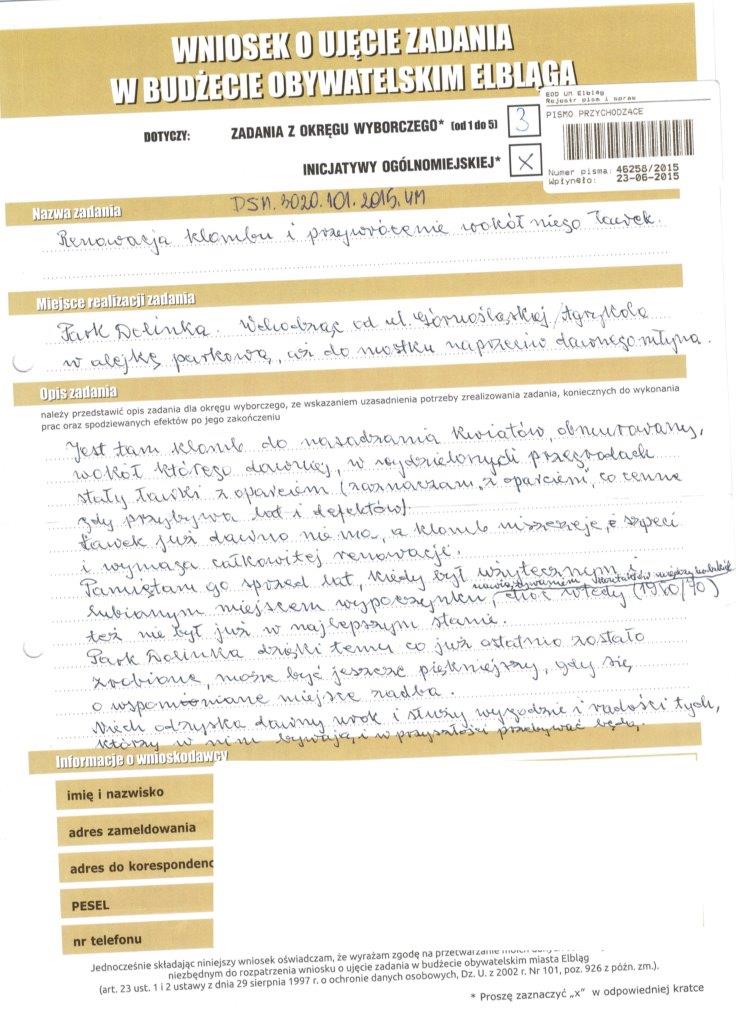 WNIOSEK O UJĘCIE ZADANIA
W BUDŻECIE OBYWATELSKIM ELBLĄGA
EOD UM Elbląg
Rejestr pism i spraw
PISMO PRZYCHODZĄCE
Numer pisma: 46258/2015
Wpłynęło: 23-06-2015
DOTYCZY: ZADANIA Z OKRĘGU WYBORCZEGO* (od 1 do 5) 3
INICJATYWY OGÓLNOMIEJSKIEJ* X
DSN. 3020.101.2015.UM
Nazwa zadania
Renowacja klombu i przywrócenie wokół niego ławek.
Miejsce realizacji zadania
Park Dolinka. Wchodząc od ul. Górnośląskiej/Agrykola
w alejkę parkową, aż do mostku naprzeciw dawnego młyna.
Opis zadania
należy przedstawić opis zadania dla okręgu wyborczego, ze wskazaniem uzasadnienia potrzeby zrealizowania zadania, koniecznych do wykonania
prac oraz spodziewanych efektów po jego zakończeniu
Jest tam klomb do nasadzania kwiatów, obmurowany,
wokół którego dawniej, w wydzielonych przegrodach
stały ławki z oparciem (zaznaczam „z oparciem", co cenne
gdy przybywa lat i defektów).
Ławek już dawno nie ma, a klomb niszczeje, szpeci
i wymaga całkowitej renowacji.
Pamiętam go sprzed lat, kiedy był użytecznym i
nawiązywaniem kontaktów między ludzkich
lubianym miejscem wypoczynku, choć wtedy (1960/70)
też nie był już w najlepszym stanie.
Park Dolinka dzięki temu co już ostatnio zostało
zrobione, może być jeszcze piękniejszy, gdy się
o wspomniane miejsce zadba.
Niech odzyska dawny urok i służy wygodzie i radości tych,
którzy w nim bywają i w przyszłości przebywać będą.
Informacje o wnioskodawcy
imię i nazwisko
adres zameldowania
adres do korespondenc
PESEL
nr telefonu
Jednocześnie składając niniejszy wniosek oświadczam, że wyrażam zgodę na przetwarzanie moich
niezbędnym do rozpatrzenia wniosku o ujęcie zadania w budżecie obywatelskim miasta Elbląg
(art. 23 ust. 1 i 2 ustawy z dnia 29 sierpnia 1997 r. o ochronie danych osobowych, Dz. U. z 2002 r. Nr 101, poz. 926 z późn. zm.).
* Proszę zaznaczyć „x" w odpowiedniej kratce